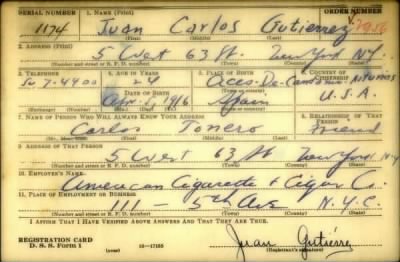 SERIAL NUMBER 1. NAME (Print) ORDER NUMBER
1174 Juan Carlos Gutierrez 2956
(First) (Middle) (Last)
2. ADDRESS (Print)
5 West 63 St. New York N.Y.
(Number and street or R. F. D. number) (Town) (County) (State)
3. TELEPHONE 4. AGE IN YEARS 5. PLACE OF BIRTH 6. COUNTRY OF CITIZENSHIP
Su 7-4400 24
DATE OF BIRTH
Apr. 1916 Spain U.S.A.
7. NAME OF PERSON WHO WILL ALWAYS KNOW YOUR ADDRESS 8. RELATIONSHIP OF THAT PERSON
Carlos Tonero Friend
9. ADDRESS OF THAT PERSON
5 West 63 St New York N.Y.
(Number and street or R. F. D. number) (Town) (County) (State)
10. EMPLOYER'S NAME
American Cigarette & Cigar Co.
11. PLACE OF EMPLOYMENT OR BUSINESS
111 — 5th Ave N.Y.C.
(Number and street or R. F. D. number) (Town) (County) (State)
I AFFIRM THAT I HAVE VERIFIED ABOVE ANSWERS AND THAT THEY ARE TRUE.
REGISTRATION CARD
D. S. S. Form 1 Juan Gutiérrez
(Registrant's signature)